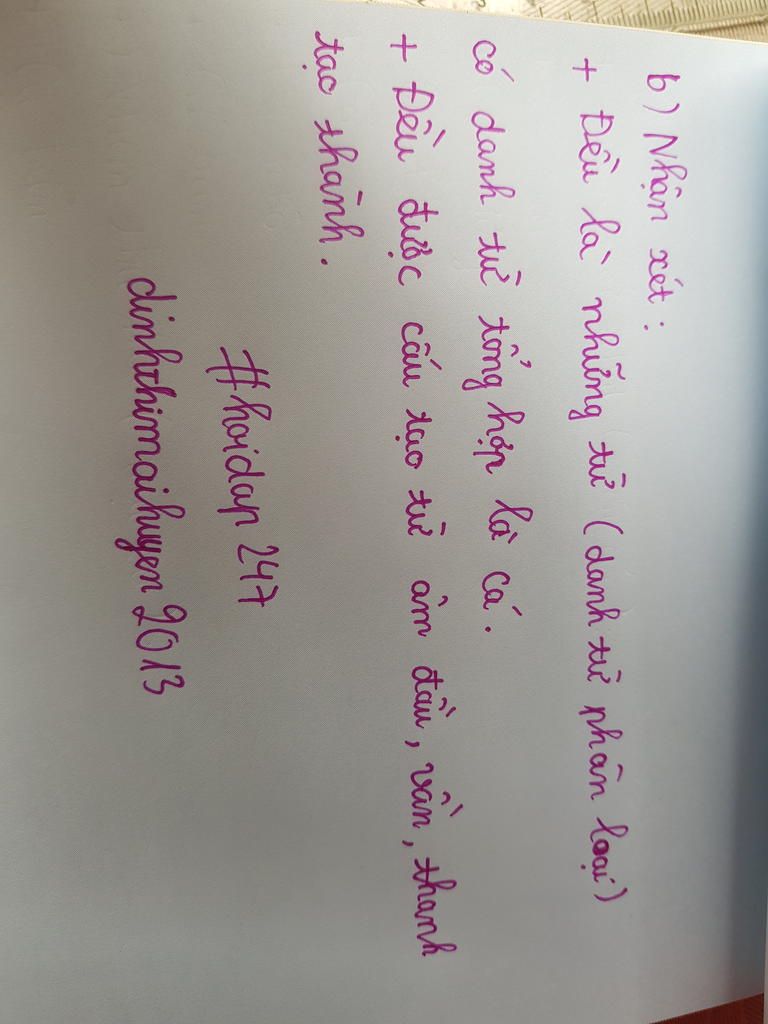 b) Nhận xét:
+ Đều là những từ (danh từ phân loại)
có danh từ tổng hợp là cá.
+ Đều được cấu tạo từ âm đầu, vần, thanh
tạo thành.
#hoidap247
dinhthimaihuyen2013